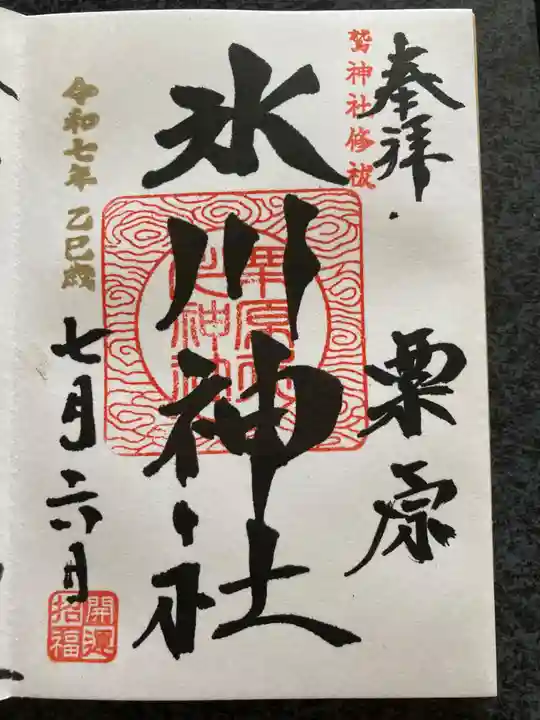 奉拝
鷲神社修祓
栗原
氷川神社
令和七年 乙巳歳
七月六日
開運
招福